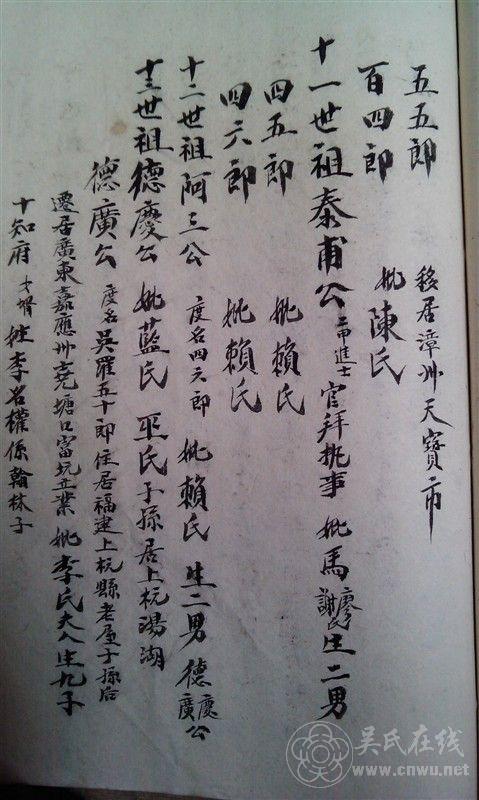 五五郎 移居漳州天寶市
百四郎 妣陳氏
十一世祖泰甫公 命進士 官拜批事 妣馬廖謝氏生二男
四五郎 妣賴氏
四六郎 妣賴氏
十二世祖阿三公 度名四六郎 妣賴氏 生二男 德慶廣公
十三世祖德慶公 妣藍氏 巫氏子孫居上杭湯湖
德廣公 度名吳羅五十郎住居福建上杭縣老屋子孫后
遷居廣東嘉應州堯塘口富坑立業 妣李氏夫人生九子
十知府 女壻姓李名權係翰林子
吴氏在线
www.cnwu.net